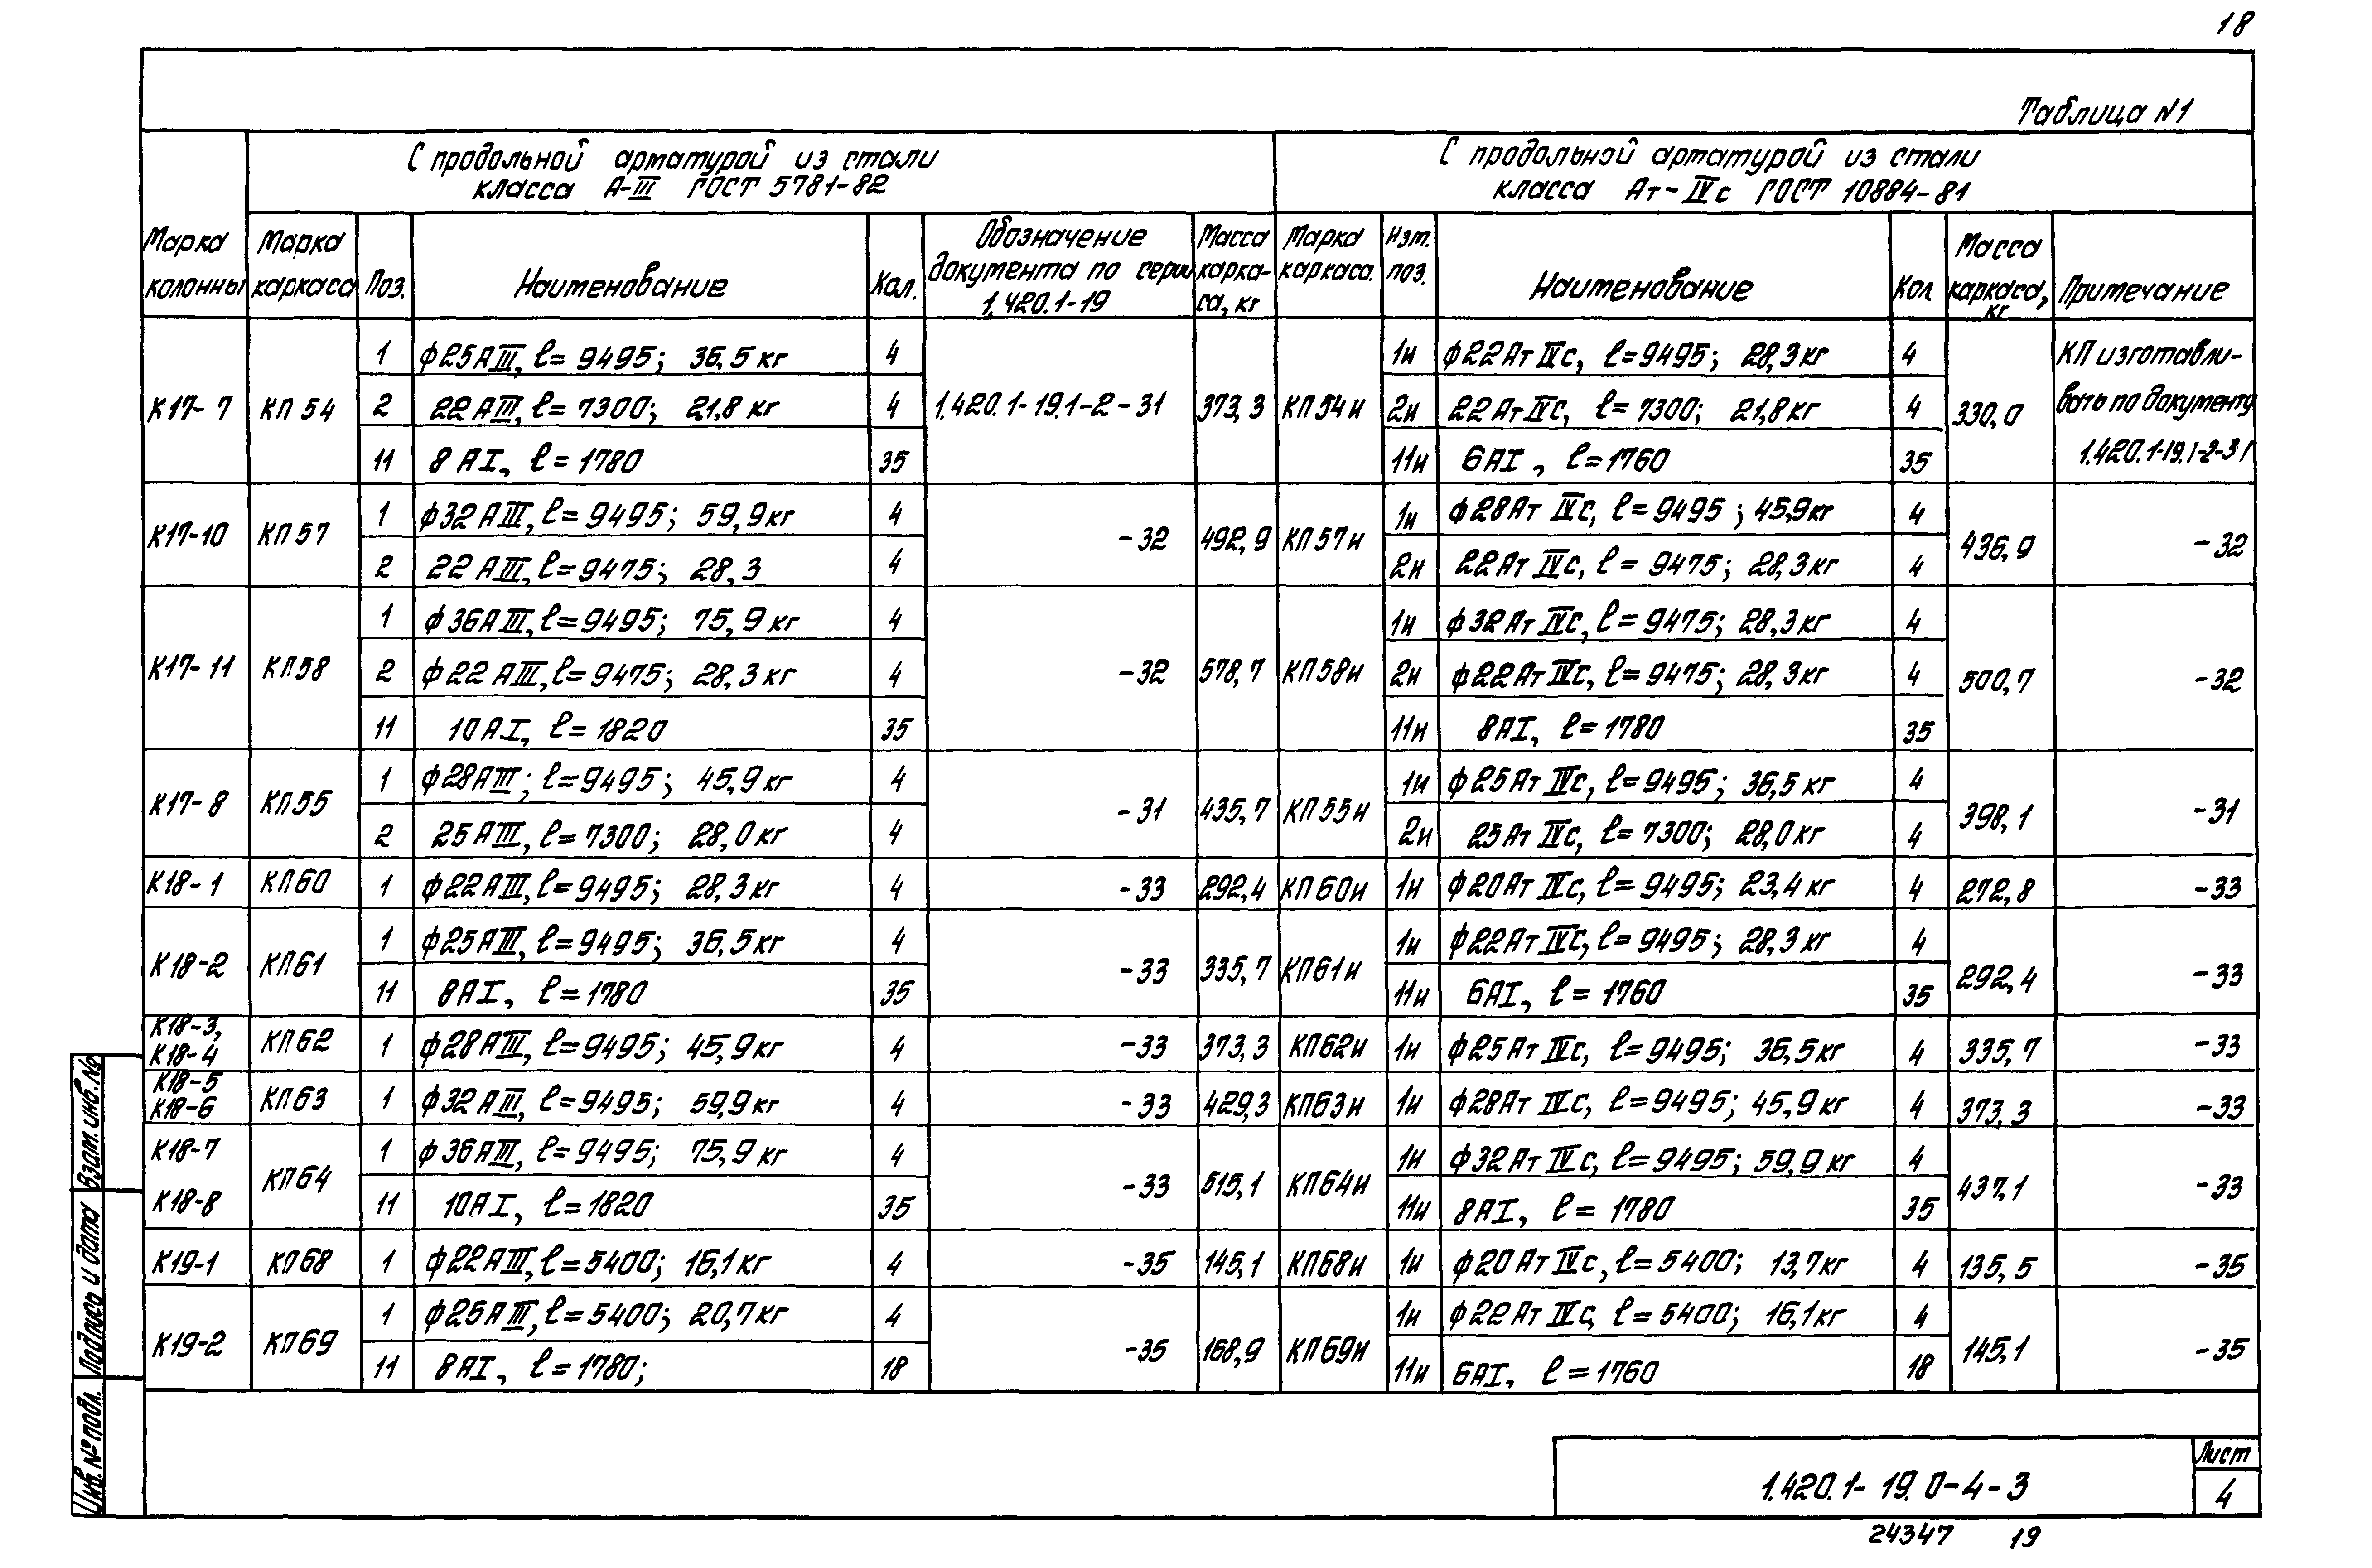 18
Таблица N1
С продольной арматурой из стали
класса А-III ГОСТ 5781-82
С продольной арматурой из стали
класса Ат-IVс ГОСТ 10884-81
Марка колонны
Марка каркаса
Поз.
Наименование
Кол.
Обозначение документа по серии 1.420.1-19
Масса карка-са, кг
Марка каркаса
Изм. поз.
Наименование
Кол
Масса каркаса, кг
Примечание
К17-7 КП54 1 ф25АIII, ℓ=9495; 36,5кг 4 1.420.1-19.1-2-31 373,3 КП54и 1и ф22АтIVс, ℓ=9495; 28,3кг 4 330,0 КП изготавли-
2 22АIII, ℓ=7300; 21,8кг 4 2и 22АтIVс, ℓ=7300; 21,8кг 4 вать по документу
11 8АI, ℓ=1780 35 11и 6АI, ℓ=1760 35 1.420.1-19.1-2-31
К17-10 КП57 1 ф32АIII, ℓ=9495; 59,9кг 4 -32 492,9 КП57и 1и ф28АтIVс, ℓ=9495; 45,9кг 4 436,9 -32
2 22АIII, ℓ=9475; 28,3 4 2и 22АтIVс, ℓ=9475; 28,3кг 4
К17-11 КП58 1 ф36АIII, ℓ=9495; 75,9кг 4 -32 578,7 КП58и 1и ф32АтIVс, ℓ=9475; 28,3кг 4 500,7 -32
2 ф22АIII, ℓ=9475; 28,3кг 4 2и ф22АтIVс, ℓ=9475; 28,3кг 4
11 10АI, ℓ=1820 35 11и 8АI, ℓ=1780 35
К17-8 КП55 1 ф28АIII; ℓ=9495; 45,9кг 4 -31 435,7 КП55и 1и ф25АтIVс, ℓ=9495; 36,5кг 4 398,1 -31
2 25АIII, ℓ=7300; 28,0кг 4 2и 25АтIVс, ℓ=7300; 28,0кг 4
К18-1 КП60 1 ф22АIII, ℓ=9495; 28,3кг 4 -33 292,4 КП60и 1и ф20АтIVс, ℓ=9495; 23,4кг 4 272,8 -33
К18-2 КП61 1 ф25АIII, ℓ=9495; 36,5кг 4 -33 335,7 КП61и 1и ф22АтIVс, ℓ=9495; 28,3кг 4 292,4 -33
11 8АI, ℓ=1780 35 11и 6АI, ℓ=1760 35
К18-3, К18-4 КП62 1 ф28АIII, ℓ=9495; 45,9кг 4 -33 373,3 КП62и 1и ф25АтIVс, ℓ=9495; 36,5кг 4 335,7 -33
К18-5 К18-6 КП63 1 ф32АIII, ℓ=9495; 59,9кг 4 -33 429,3 КП63и 1и ф28АтIVс, ℓ=9495; 45,9кг 4 373,3 -33
К18-7 КП64 1 ф36АIII, ℓ=9495; 75,9кг 4 -33 515,1 КП64и 1и ф32АтIVс, ℓ=9495; 59,9кг 4 437,1 -33
К18-8 11 10АI, ℓ=1820 35 11и 8АI, ℓ=1780 35
К19-1 КП68 1 ф22АIII, ℓ=5400; 16,1кг 4 -35 145,1 КП68и 1и ф20АтIVс, ℓ=5400; 13,7кг 4 135,5 -35
К19-2 КП69 1 ф25АIII, ℓ=5400; 20,7кг 4 -35 168,9 КП69и 1и ф22АтIVс, ℓ=5400; 16,1кг 4 145,1 -35
11 8АI, ℓ=1780; 18 11и 6АI, ℓ=1760 18
Взам. инв. №
Подпись и дата
Инв. № подл.
1.420.1-19.0-4-3
Лист
4
24347 19